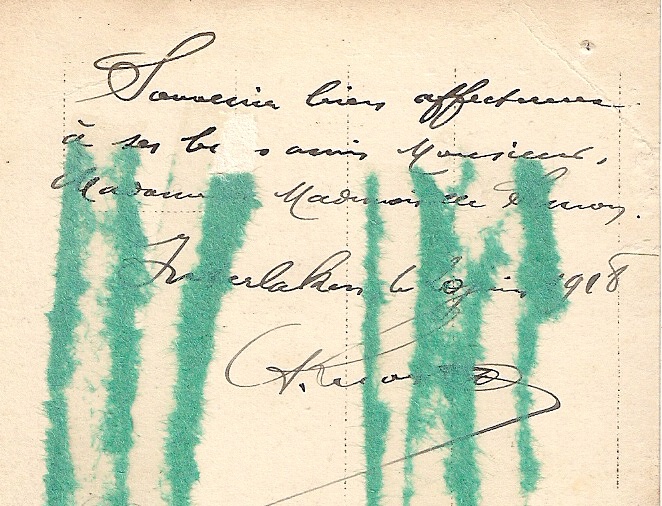 Souvenir bien affectueux
à ses bons amis Monsieur,
Madame Mademoiselle
Interlaken le juin 1918